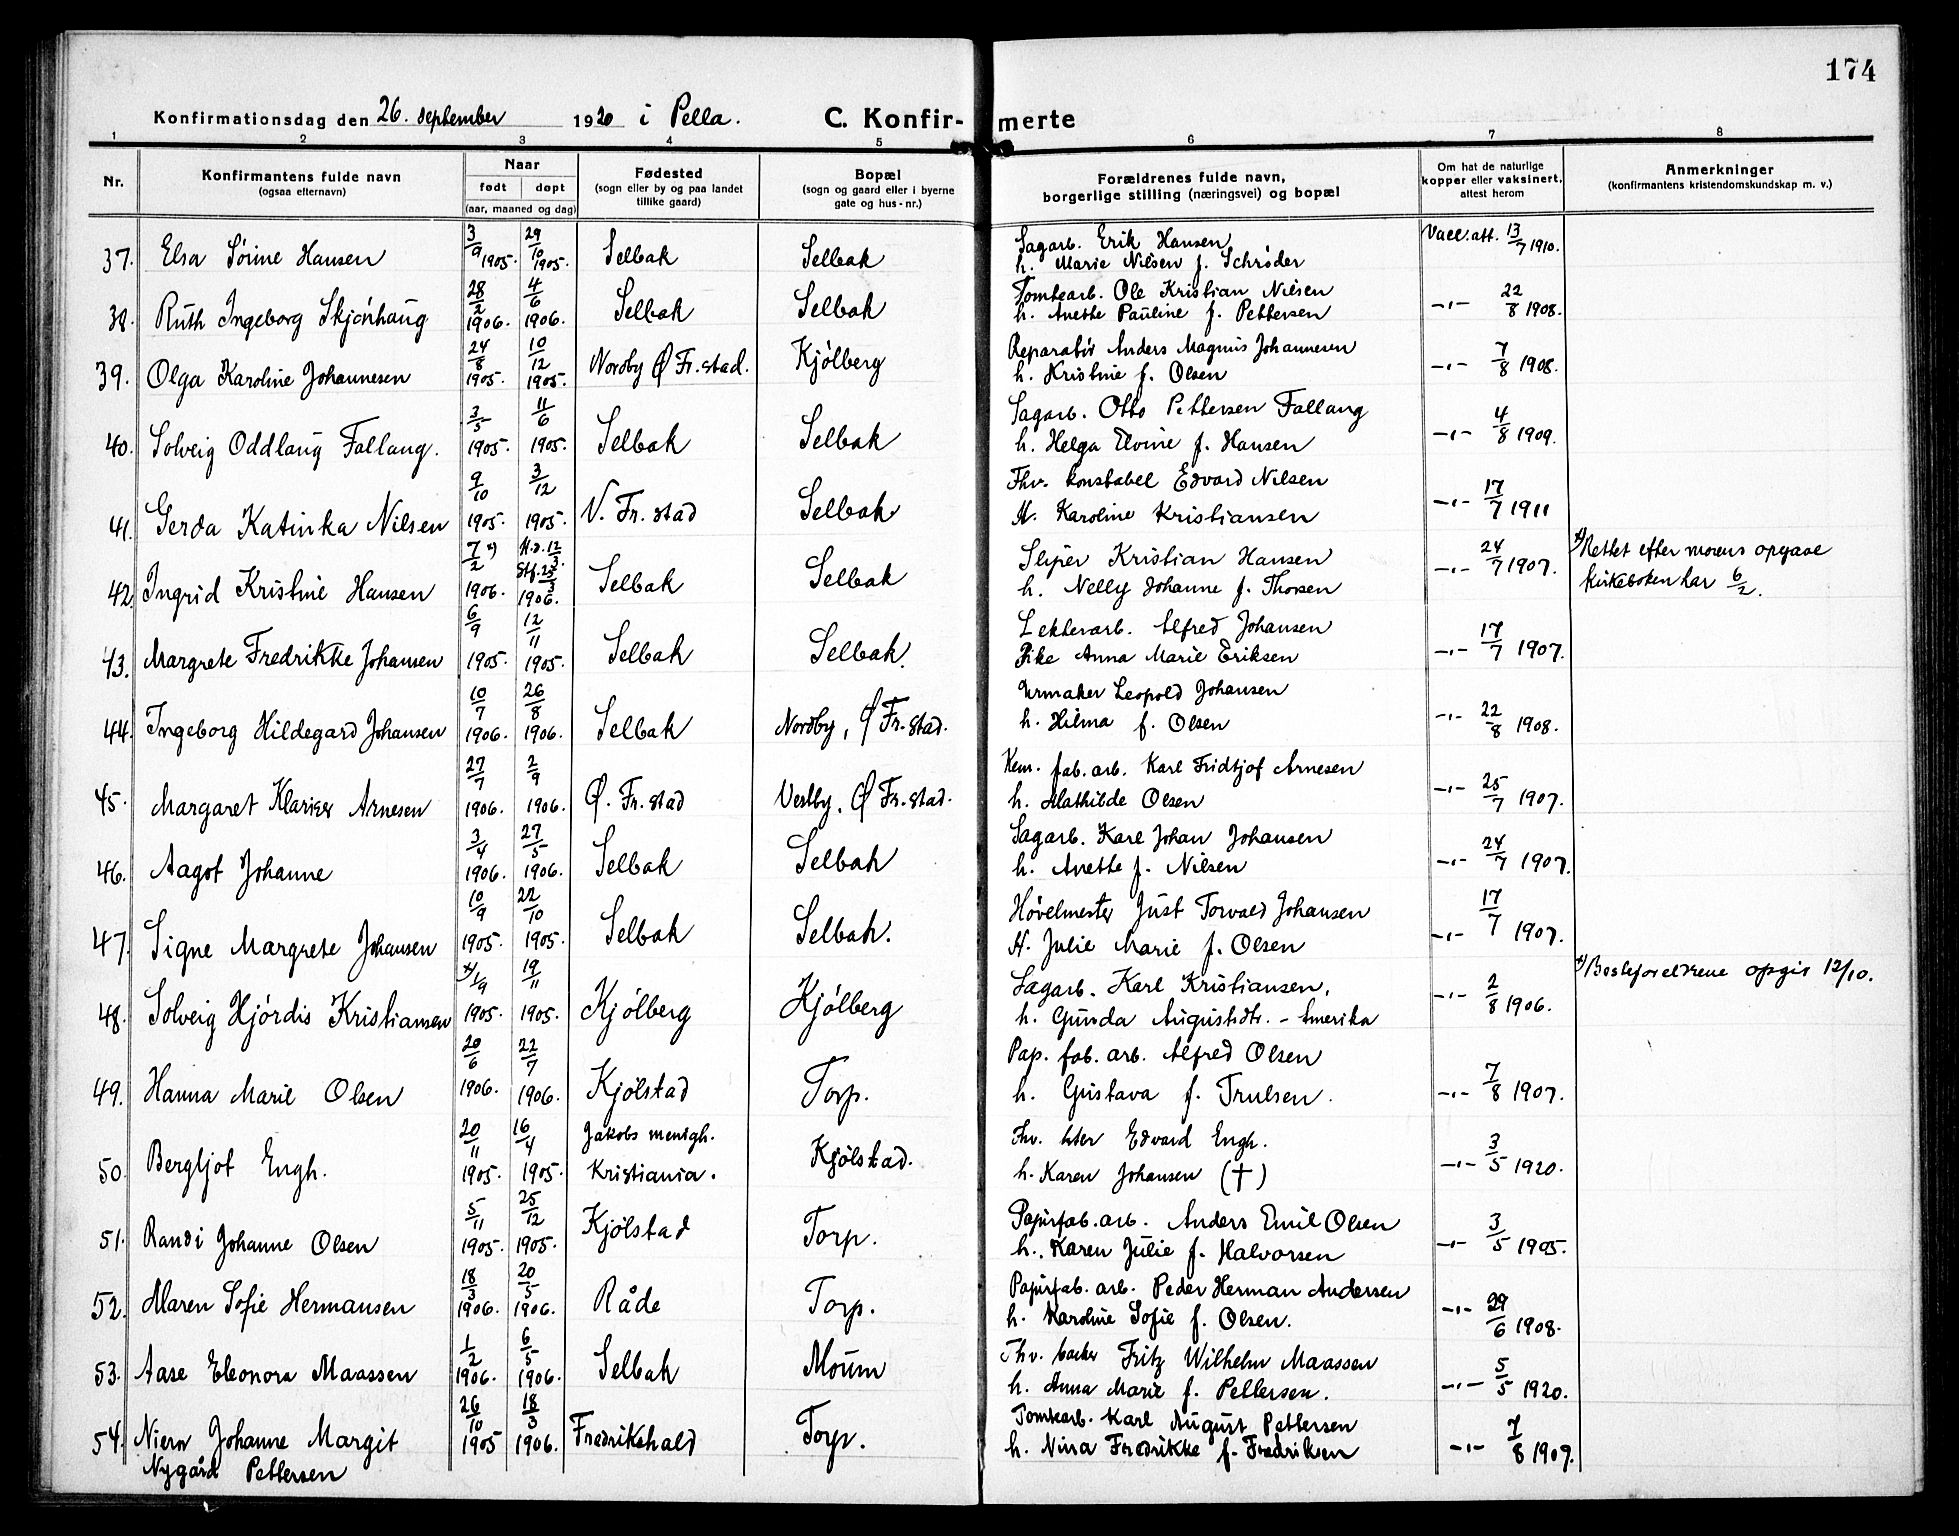 174
Konfirmationsdag den 26. september 1920 i Pella. C. Konfir- merte
1 2 3 4 5 6 7 8
Nr. Konfirmantens fulde navn (ogsaa efternavn) Naar født døpt (aar, maaned og dag) Fødested (sogn eller by og paa landet tillike gaard) Bopæl (sogn og gaard eller i byerne gate og hus-nr.) Forældrenes fulde navn, borgerlige stilling (næringsvei) og bopæl Om hat de naturlige kopper eller vaksinert, attest herom Anmerkninger (konfirmantens kristendomskundskap m. v.)
37. Elsa Sörine Hansen 3/9 1905. 29/10 1905. Selbak Selbak Sagarb. Erik Hansen Vacc.att. 13/7 1910.
h. Marie Nilsen f. Schrøder
38. Ruth Ingeborg Skjønhaug 28/2 1906. 4/6 1906. Selbak Selbak Tomtearb. Ole Kristian Nilsen -"- 22/8 1908.
h. Anette Pauline f. Pettersen
39. Olga Karoline Johannesen 24/8 1905. 10/12 1905. Nordby Ø Fr.stad. Kjölberg Reparatör Anders Magnus Johannesen -"- 7/8 1908.
h. Kristine f. Olsen
40. Solveig Oddlaug Fallang. 3/5 1905. 11/6 1905. Selbak Selbak Sagarb. Otto Pettersen Fallang -"- 4/8 1909.
h. Helga Elvine f. Hansen
41. Gerda Katinka Nilsen 9/10 1905. 3/12 1905. V. Fr.stad Selbak Fhv. konstabel Edvard Nilsen -"- 17/7 1911
H. Karoline Kristiansen
42. Ingrid Kristine Hansen 7/2 x) 1906. H.d. 12/3. Stf. 25/3 1906. Selbak Selbak Sliper Kristian Hansen -"- 24/7 1907. x) Rettet efter morens opgave
h. Nelly Johanne f. Thorsen kirkeboken har 6/2.
43. Margrete Fredrikke Johansen 6/9 1905. 12/11 1905. Selbak Selbak. Lekterarb. Alfred Johansen -"- 17/7 1907.
Pike Anna Marie Eriksen
44. Ingeborg Hildegard Johansen 10/7 1906. 26/8 1906. Selbak Nordby, Ø Fr.stad. Urmaker Leopold Johansen -"- 22/8 1908.
h. Hilma f. Olsen
45. Margaret Arnesen 27/7 1906. 2/9 1906. Ø. Fr.stad Vestby, Ø Fr.stad. Kem. fab.arb. Karl Fridtjof Arnesen -"- 25/7 1907.
h. Mathilde Olsen
46. Aagot Johanne 3/4 1906. 27/5 1906. Selbak Selbak Sagarb. Karl Johan Johansen -"- 24/7 1907.
h. Anette f. Nilsen
47. Signe Margrete Johansen 10/9 1905. 22/10 1905. Selbak Selbak. Høvelmester Just Torvald Johansen -"- 17/7 1907.
H. Julie Marie f. Olsen
48. Solveig Hjördis Kristiansen x) 1/9 1905. 19/11 1905. Kjölberg Kjölberg Sagarb. Karl Kristiansen, -"- 2/8 1906. x) Besteforeldrene opgir 12/10.
h. Gunda Augustsdtr. - Amerika
49. Hanna Marie Olsen 20/6 1906. 22/7 1906. Kjölstad Torp. Pap. fab. arb. Alfred Olsen -"- 7/8 1907.
h. Gustava f. Trulsen.
50. Bergljot Engh. 20/11 1905. 16/4 1905. Jakobs menigh. Kristiania. Kjölstad. Fhv. Edvard Engh. -"- 3/5 1920.
h. Karen Johansen (†)
51. Randi Johanne Olsen 5/11 1905. 25/12 1905. Kjölstad Torp. Papirfab.arb. Anders Emil Olsen -"- 3/5 1905.
h. Karen Julie f. Halvorsen
52. Maren Sofie Hermansen 18/3 1906. 20/5 1906. Råde Torp. Papirfab. arb. Peder Herman Andersen -"- 29/6 1908.
h. Karoline Sofie f. Olsen.
53. Aase Eleonora Maassen 1/2 1906. 6/5 1906. Selbak Moum Fhv. baker Fritz Wilhelm Maassen -"- 5/5 1920.
h. Anna Marie f. Pettersen.
54. Johanne Margit 26/10 1905 18/3 1906. Fredrikshald Torp. Tomtearb. Karl August Pettersen -"- 7/8 1909.
Nygård Pettersen h. Nina Fredrikke f. Fredriksen